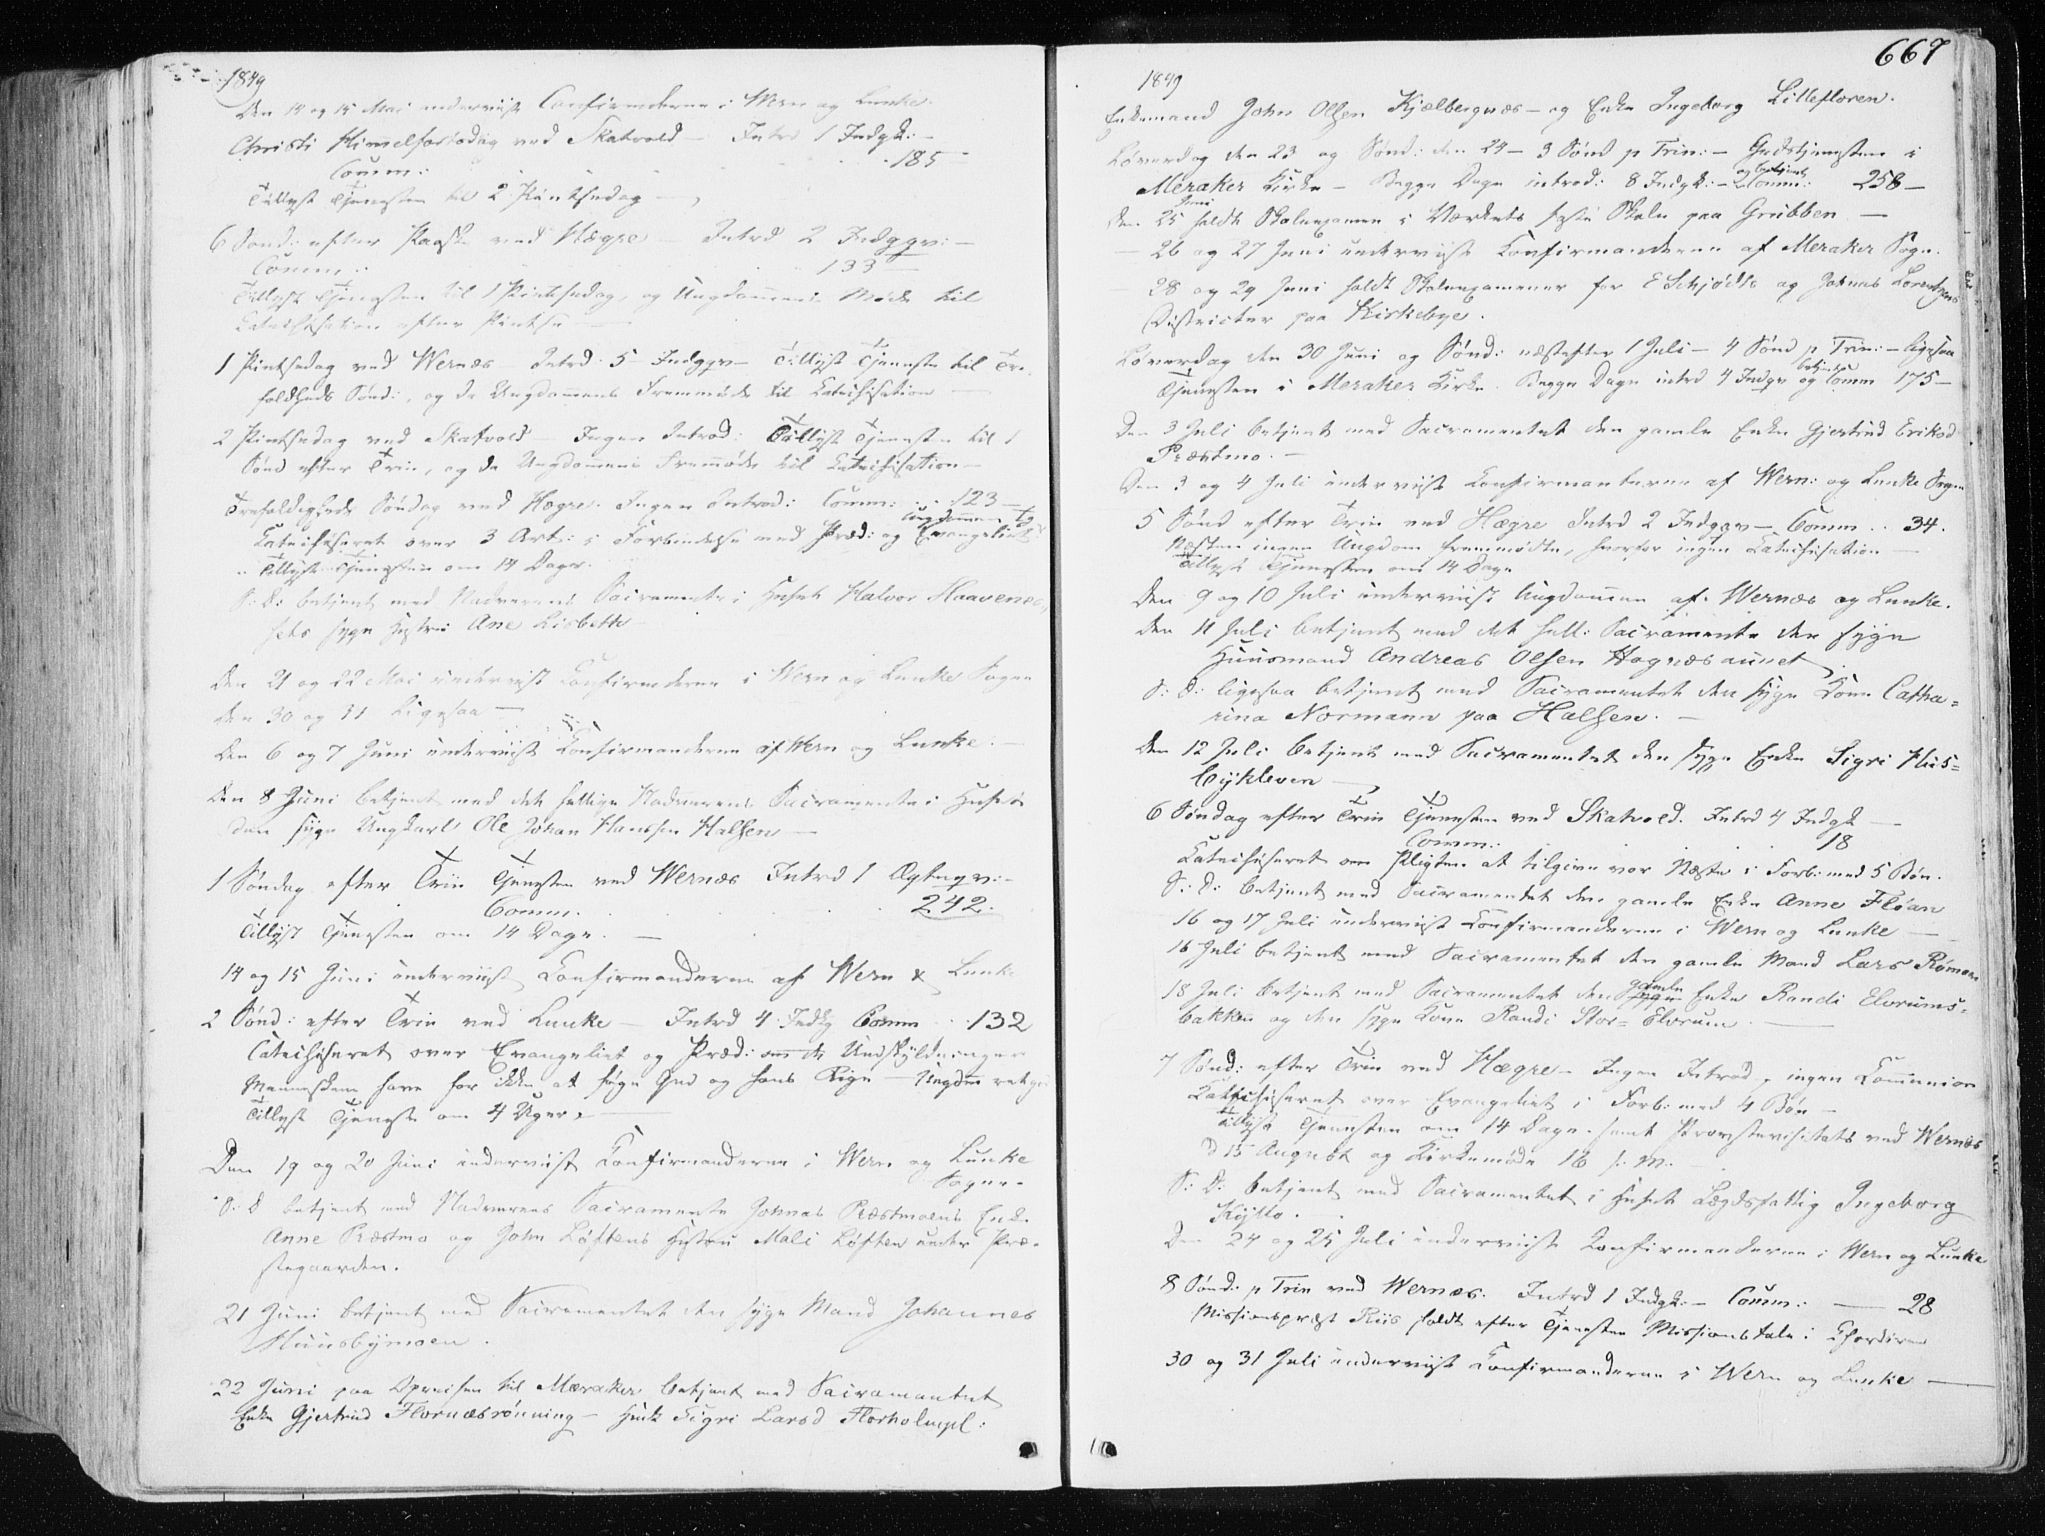 1849
Den 14 og 15 Mai underviist Confirmderne i Wern og Lunke.
Christi Himmelfartsdag ved Skatvold – Intrd 1 Indgk: –
Comm: 185 –
Tillyst Tjenesten til 2 Pintsedag –
6 Sønd: efter Paaske ved Hægre – Intrd 2 Indggv: –
Comm: 133 –
Tillyst Tjenesten til 1 Pintsedag, og Ungdommens Møde til
Catechisation efter Pintse –
1 Pintsedag ved Wernæs Intrd: 5 Indggv – Tillyst Tjeneste til Tre-
foldheds Sønd:, og da Ungdommens Fremmøde til Catechisation –
2 Pintsedag ved Skatvold – Ingen Introd: Tillyst Tjenesten til 1
Sønd efter Trin, og da Ungdommens Fremmøde til Catechisation –
Trefoldigheds Søndag ved Hægre. Ingen Introd: Comm: . . . 123 –
Catechiseret over 3 Art: i Forbindelse med Præd: og Evangeliet
Tillyst Tjenesten om 14 Dage.
S: D: betjent med Nadverens Sacramente i Huset Halvor Haavenes,
sets syge Hustru Ane Lisbeth
Den 21 og 22 Mai underviist Confirmderne i Wern og Lunke Sogne
Den 30 og 31 ligesaa –
Den 6 og 7 Juni underviist Confirmanderne af Wern og Lunke. –
Den 8 Juni betjent med det hellige Nadverens Sacramente i Huset
den syge Ungkarl Ole Johan Hanssen Halsen –
1 Søndag efter Trin Tjenesten ved Wernæs Intrd 1 Ægtegv: –
Comm. 242.
Tillyst Tjenesten om 14 Dage. –
14 og 15 Juni underviist Confirmanderne af Wern & Lunke
2 Sønd: efter Trin ved Lunke – Intrd 4 Indkg Comm . . 132
Catechiseret over Evangeliet og Præd: om de Undskyldninger
Menneskene have for ikke at søge Gud og hans Rige –
Tillyst Tjeneste om 4 Uger. –
Den 19 og 20 Juni underviist Confirmanderne i Wern og Lunke
Sogne.
S: D betjent med Nadverens Sacramente Johnas Præstmoens Enke
Anne Præstmo og John Løftens Hustru Mali Løften under Præ-
stegaarden.
21 Juni betjent med Sacramentet den syge Mand Johannes
Huusbymoen.
22 Juni paa Opreisen til Meraker betjent med Sacramentet
Enke Gjertrud Flornæsrønning – Sigri Larsd Florholmpl:
667
1849
Enkemand John Olsen Kjælbergnæs – og Enke Ingeborg Lillefloren.
Løverdag den 23 og Sønd: den 24 – 3 Sønd p Trin: – Gudstjenesten i
Meraker Kirke – Begge Dage introd: 8 Indgk: – og betjent Comm: 258 –
Den 25 Juni holdt Skoleexamen i Værkets faste Skole paa Grubben –
– 26 og 27 Juni underviist Confirmanderne af Meraker Sogn.
– 28 og 29 Juni holdt Skoleexamener for E Schjødts og Johnas Lorentzens
Districter paa Kirkebye.
Løverdag den 30 Juni og Sønd: næstefter 1 Juli – 4 Sønd p Trin: – ligesaa
Tjenesten i Meraker Kirke. Begge Dage intrd 4 Indgv og betjent Comm 175 –
Den 3 Juli betjent med Sacramentet den gamle Enke Gjertrud Eriksd
Præstmo. –
Den 3 og 4 Juli underviist Confirmanterne af Wern: og Lunke Sogne
5 Sønd efter Trin ved Hægre Intrd 2 Indggv – Comm . . 34.
Næsten ingen Ungdom fremmødte, hvorfor ingen Catechisation –
Tillyst Tjenesten om 14 Dage
Den 9 og 10 Juli underviist Ungdommen af Wernæs og Lunke.
Den 11 Juli betjent med det hell: Sacramente den syge
Huusmand Andreas Olsen Hognæsaunet
S: D: ligesaa betjent med Sacramentet den syge Kone Catha-
rina Normann paa Halsen. –
Den 12 Juli betjent med Sacramentet den syge Enke Sigri Hus-
bykleven –
6 Søndag efter Trin Tjenesten ved Skatvold. Intrd 4 Indgk –
Comm: 18
Catechiseret om Pligten at tilgive vor Næste i Forb: med 5 Bøn.
S: D: betjent med Sacramentet den gamle Enke Anne Fløan
16 og 17 Juli underviist Confirmanderne i Wern og Lunke –
16 Juli betjent med Sacramentet den gamle Mand Lars Rømo
18 Juli betjent med Sacramentet den gamle Enke Randi Elvrums-
bakken og den syge Kone Randi Stor-Elvrum. –
7 Sønd: efter Trin ved Hægre – Ingen Introd, ingen Communion
Catechiseret over Evangeliet i Forb: med 4 Bøn –
Tillyst Tjenesten om 14 Dage. samt Provstevisitats ved Wernæs
d 15 August og Kirkemøde 16 s: M. –
S: D: betjent med Sacramentet i Huset Lægdsfattig Ingeborg
Kyllo.
Den 24 og 25 Juli underviist Confirmanderne i Wern og Lunke
8 Sønd: p Trin ved Wernæs. Intrd 1 Indgk: – Comm: – 28
Missionspræst Riis holdt efter Tjenesten Missionstale i Chordøren
30 og 31 Juli underviist Confirmanderne i Wern og Lunke –